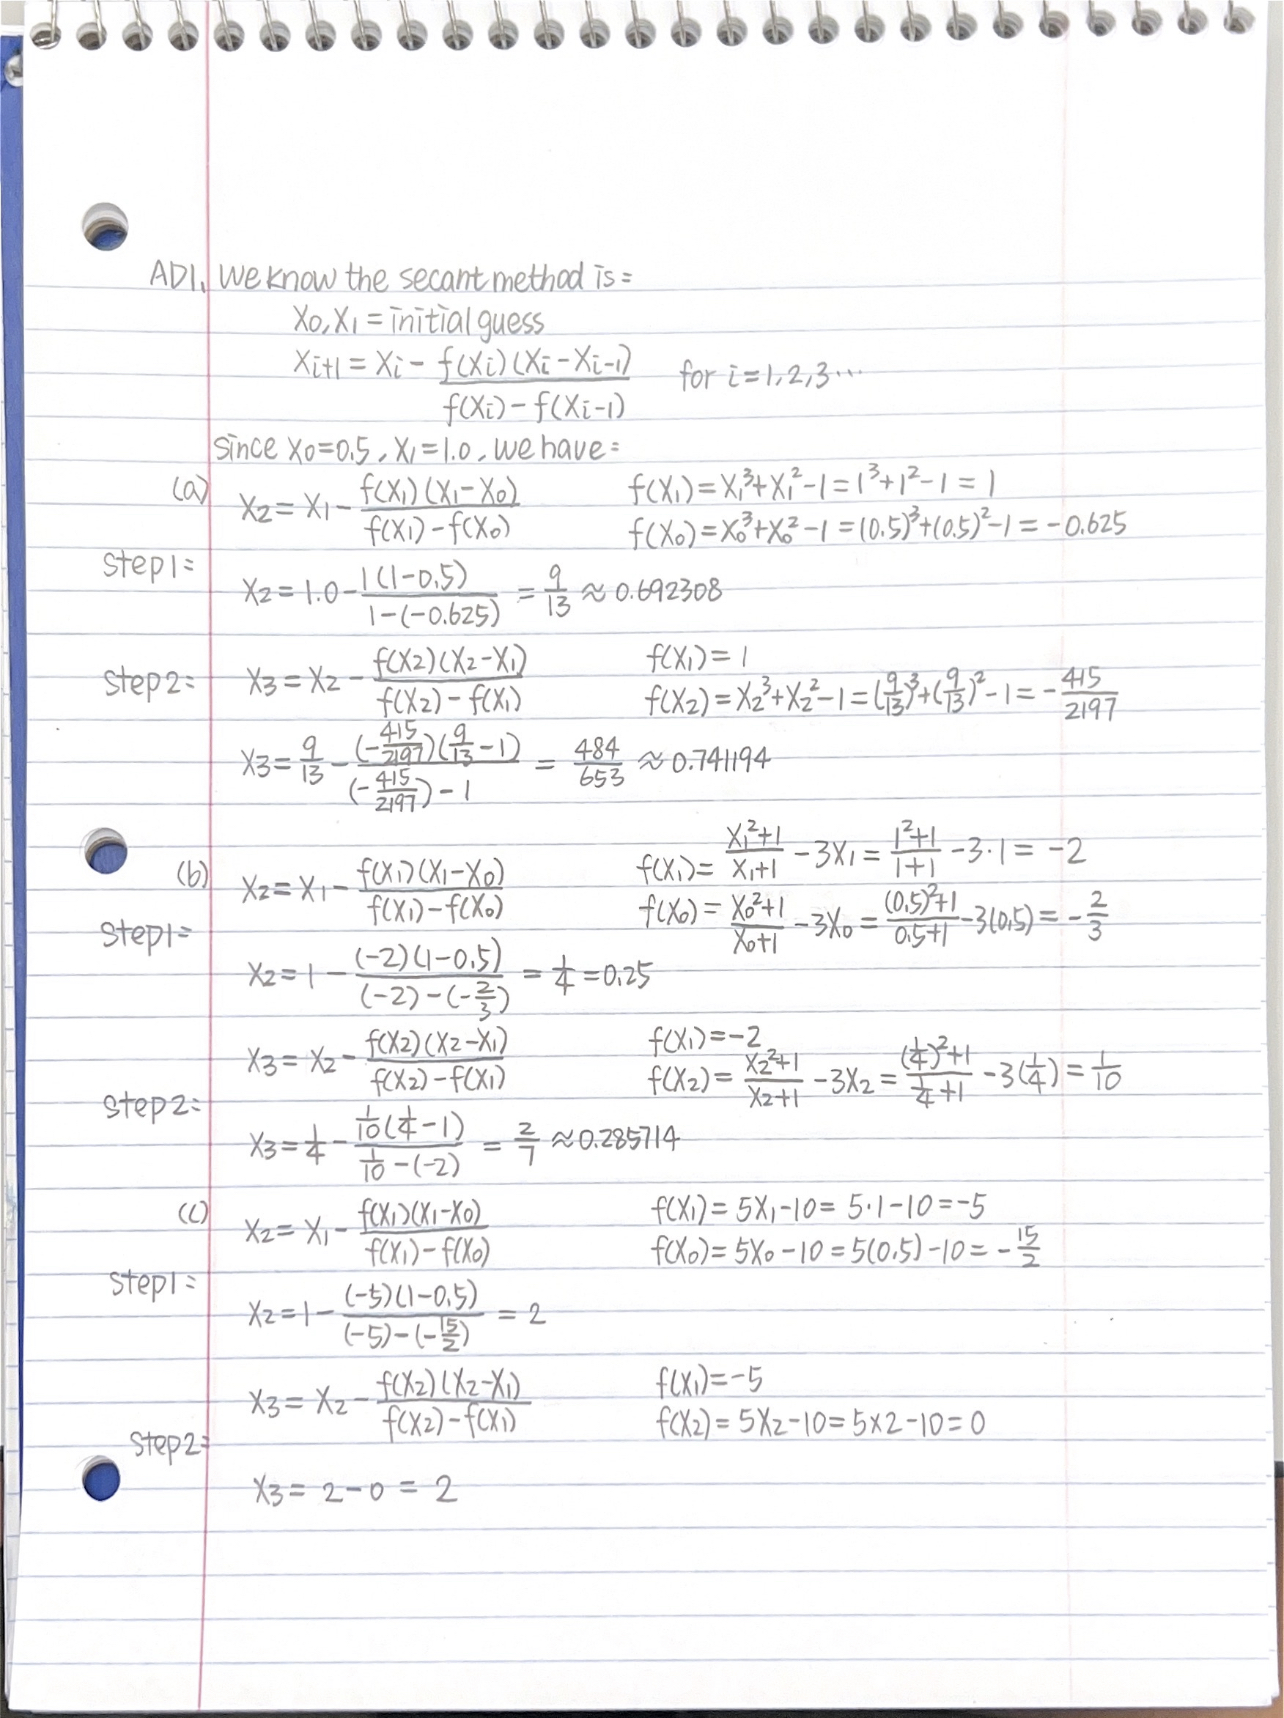 AD1. We know the secant method is:
X0, X1 = initial guess
Xi+1 = Xi - f(Xi)(Xi - Xi-1) / f(Xi) - f(Xi-1) for i = 1,2,3...
Since X0=0.5, X1=1.0, we have:
(a) X2 = X1 - f(X1)(X1-X0) / f(X1)-f(X0)
f(X1) = X1³+X1²-1 = 1³+1²-1 = 1
f(X0) = X0³+X0²-1 = (0.5)³+(0.5)²-1 = -0.625
Step1:
X2 = 1.0 - 1(1-0.5) / 1-(-0.625) = 9/13 ≈ 0.692308
Step2: X3 = X2 - f(X2)(X2-X1) / f(X2)-f(X1)
f(X1) = 1
f(X2) = X2³+X2²-1 = (9/13)³+(9/13)²-1 = -415/2197
X3 = 9/13 - (-415/2197)(9/13-1) / (-415/2197)-1 = 484/653 ≈ 0.741194
(b) X2 = X1 - f(X1)(X1-X0) / f(X1)-f(X0)
f(X1) = X1²+1 / X1+1 - 3X1 = 1²+1 / 1+1 - 3·1 = -2
f(X0) = X0²+1 / X0+1 - 3X0 = (0.5)²+1 / 0.5+1 - 3(0.5) = -2/3
Step1:
X2 = 1 - (-2)(1-0.5) / (-2)-(-2/3) = 1/4 = 0.25
X3 = X2 - f(X2)(X2-X1) / f(X2)-f(X1)
f(X1) = -2
f(X2) = X2²+1 / X2+1 - 3X2 = (1/4)²+1 / 1/4+1 - 3(1/4) = 1/10
Step2:
X3 = 1/4 - 1/10(1/4-1) / 1/10-(-2) = 2/7 ≈ 0.285714
(c) X2 = X1 - f(X1)(X1-X0) / f(X1)-f(X0)
f(X1) = 5X1-10 = 5·1-10 = -5
f(X0) = 5X0-10 = 5(0.5)-10 = -15/2
Step1:
X2 = 1 - (-5)(1-0.5) / (-5)-(-15/2) = 2
X3 = X2 - f(X2)(X2-X1) / f(X2)-f(X1)
f(X1) = -5
f(X2) = 5X2-10 = 5×2-10 = 0
Step2:
X3 = 2-0 = 2